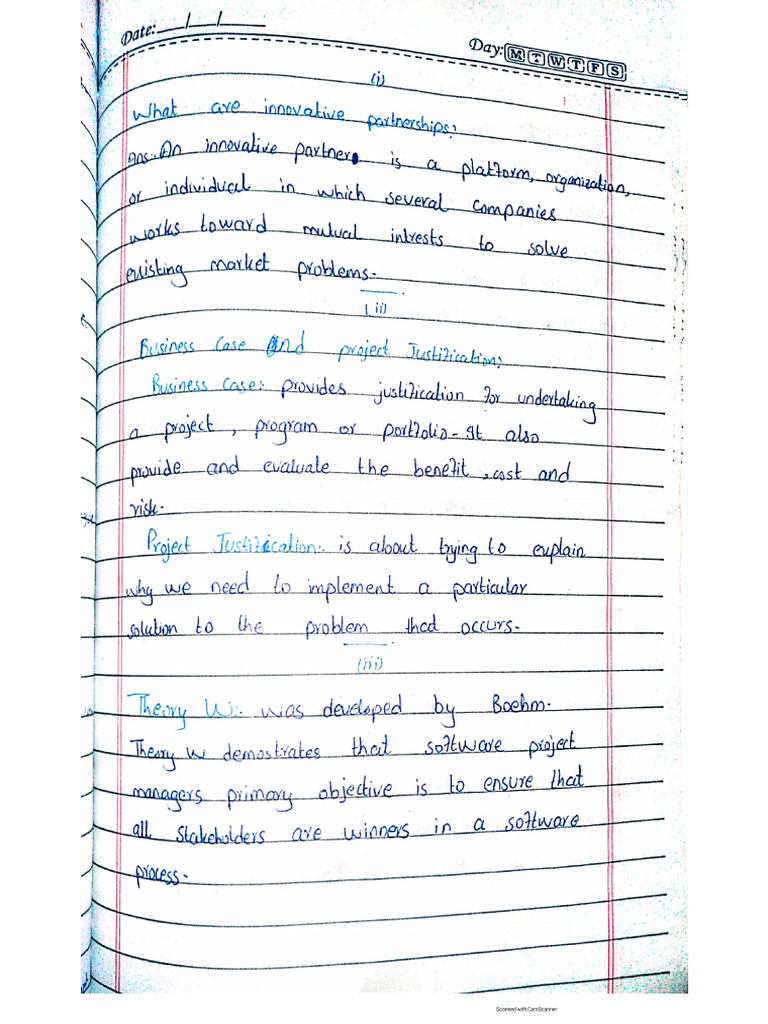 Date:___/___/____
Day: M T W T F S
(i)
What are innovative partnerships?
Ans. An innovative partner is a platform, organization,
or individual in which several companies
works toward mutual intrests to solve
exisisting market problems.
(ii)
Business Case And project Justification:
Business Case: provides justification for undertaking
a project, program or portfolio. It also
provide and evaluate the benefit, cost and
risk.
Project Justification: is about trying to explain
why we need to implement a particular
solution to the problem that occurs.
(iii)
Theory W: was developed by Boehm.
Theory W demostrates that software project
managers primary objective is to ensure that
all stakeholders are winners in a software
process.
Scanned with CamScanner